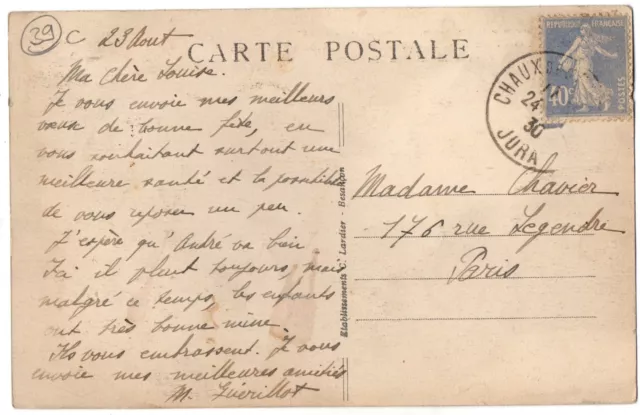 39
C
23 Août
CARTE POSTALE
Ma Chère Louise.
Je vous envoie mes meilleurs
vœux de bonne fête, en
vous souhaitant surtout une
meilleure santé et la possibilité
de vous reposer un peu.
J'espère qu'André va bien.
Ici il pleut toujours, mais
malgré ce temps, les enfants
ont très bonne mine.
Ils vous embrassent. Je vous
envoie mes meilleures amitiés
M. Guérillot
Etablissements C. Lardier - Besançon
REPUBLIQUE FRANÇAISE
POSTES
40c
CHAUX
24
30
JURA
Madame Chavier
176 rue Legendre
Paris